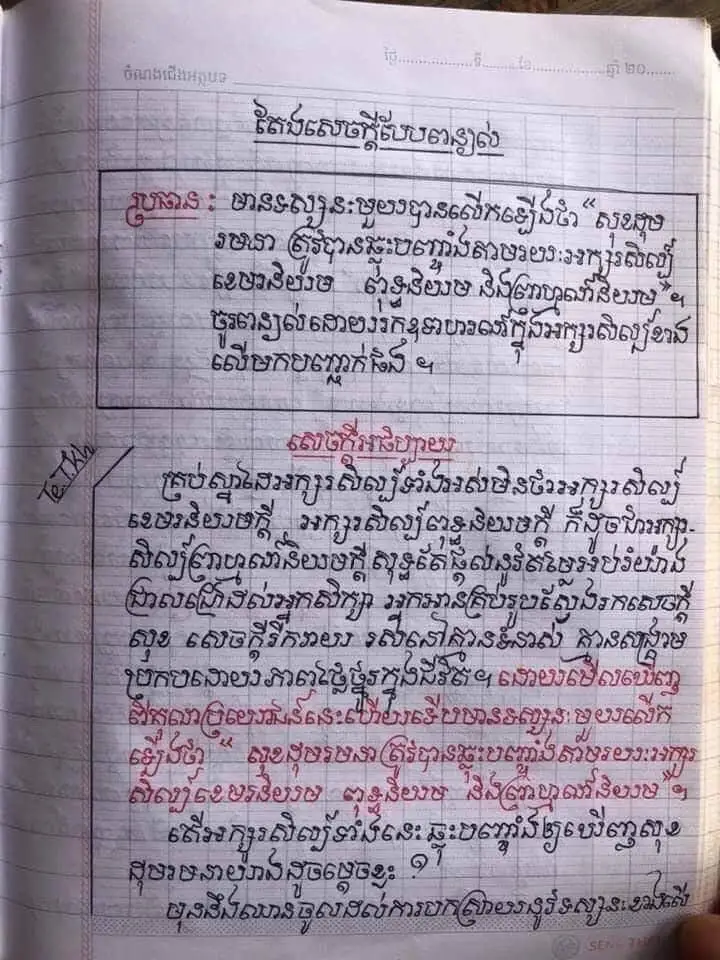 ថ្ងៃ................ទី........ខែ................ឆ្នាំ ២០.......
ចំណងជើងអត្ថបទ
តែងសេចក្ដីបែបពន្យល់
ប្រធាន : មានទស្សនៈមួយបានលើកឡើងថា “សុខដុម
រមនា ត្រូវបានឆ្លុះបញ្ចាំងតាមរយៈអក្សរសិល្ប៍
ខេមរនិយម ពុទ្ធនិយម និងព្រាហ្មណ៍និយម”។
ចូរពន្យល់ដោយរកឧទាហរណ៍ក្នុងអក្សរសិល្ប៍ខាង
លើមកបញ្ជាក់ផង ។
សេចក្ដីអធិប្បាយ
Te.TKh
គ្រប់ស្នាដៃអក្សរសិល្ប៍ទាំងអស់មិនថាអក្សរសិល្ប៍
ខេមរនិយមក្ដី អក្សរសិល្ប៍ពុទ្ធនិយមក្ដី ក៏ដូចជាអក្សរ-
សិល្ប៍ព្រាហ្មណ៍និយមក្ដី សុទ្ធតែផ្ដល់នូវតម្លៃអប់រំយ៉ាង
ជ្រាលជ្រៅដល់អ្នកសិក្សា អ្នកអានគ្រប់រូបស្វែងរកសេចក្ដី
សុខ សេចក្ដីរីករាយ រស់នៅគ្មានទំនាស់ គ្មានសង្គ្រាម
ប្រកបដោយភាពថ្លៃថ្នូរក្នុងជីវិត។ ដោយមើលឃើញ
ពីគុណប្រយោជន៍នេះហើយទើបមានទស្សនៈមួយលើក
ឡើងថា “ សុខដុមរមនាត្រូវបានឆ្លុះបញ្ចាំងតាមរយៈអក្សរ
សិល្ប៍ខេមរនិយម ពុទ្ធនិយម និងព្រាហ្មណ៍និយម”។
តើអក្សរសិល្ប៍ទាំងនេះឆ្លុះបញ្ចាំងឲ្យឃើញសុខ
ដុមរមនាយ៉ាងដូចម្ដេចខ្លះ ?
មុននឹងឈានចូលដល់ការបកស្រាយនូវទស្សនៈខាងលើ